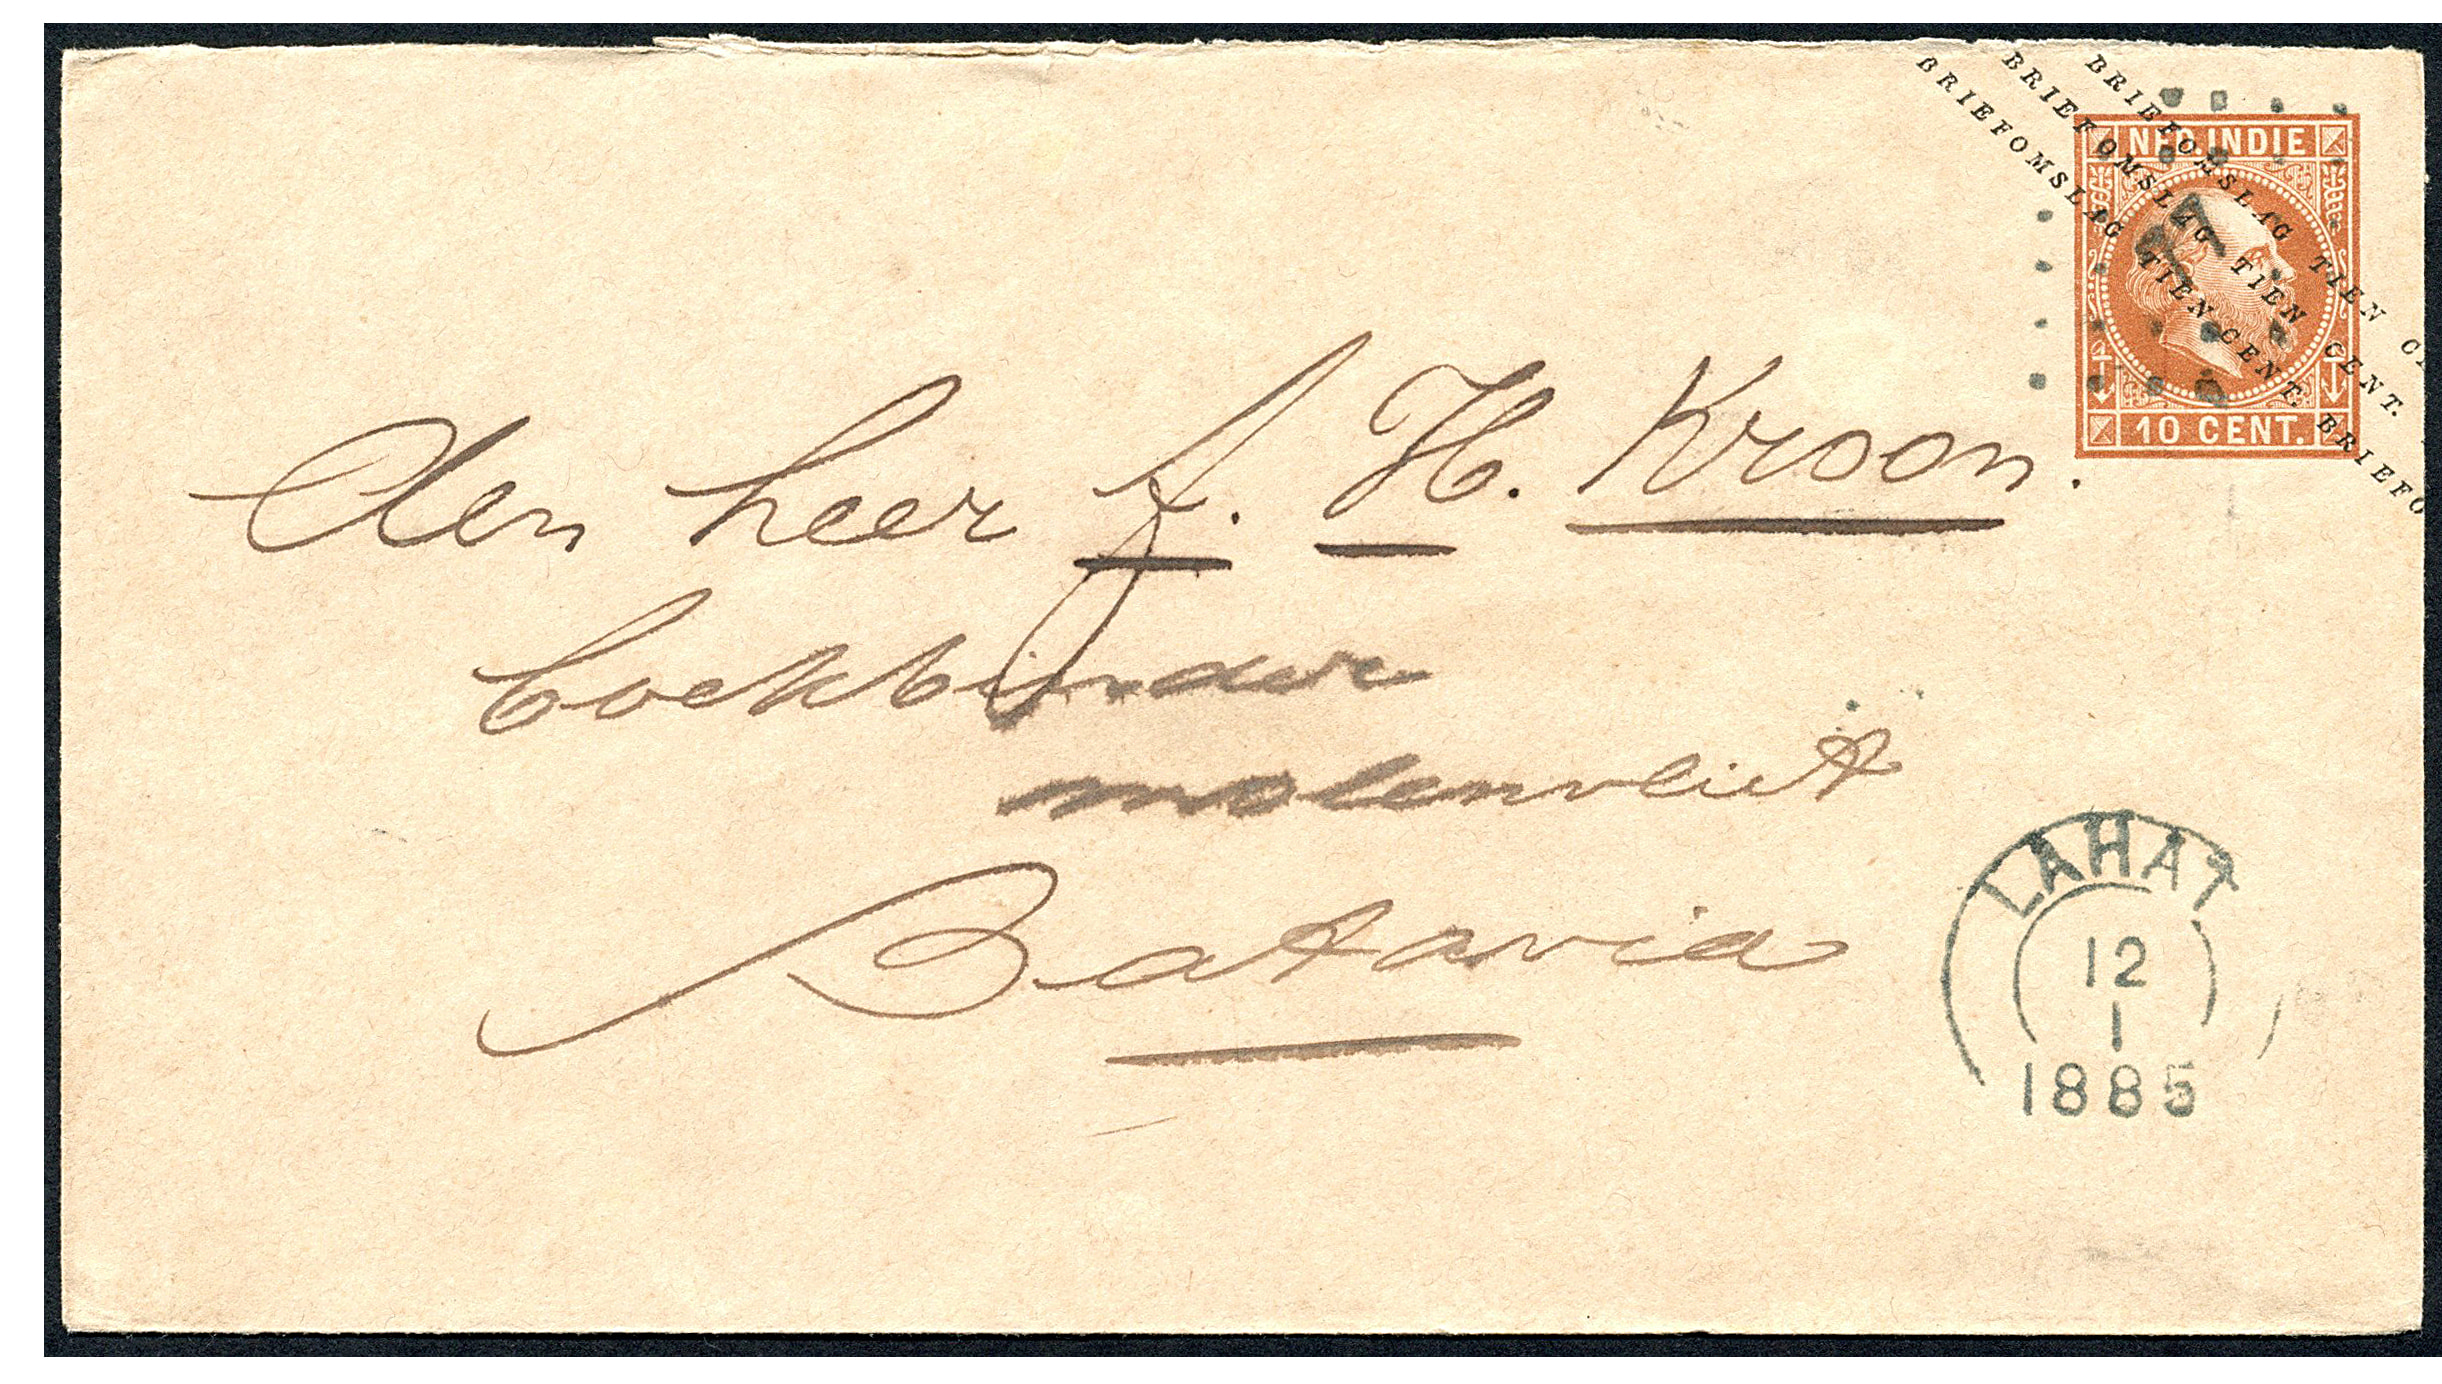 BRIEFOMSLAG TIEN CENT. BRIEFO
BRIEFOMSLAG TIEN CENT.
BRIEFOMSLAG TIEN CE
NED. INDIE
10 CENT.
den heer A. H. Kroon.
boekbinder
molenvliet
Batavia
LAHAT
12
1
1885